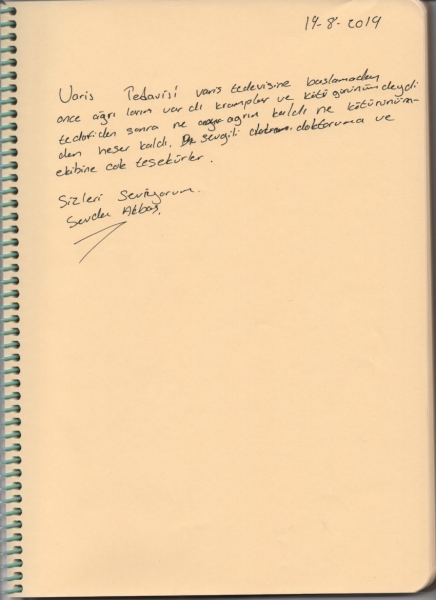 14-8-2019
Varis Tedavisi varis tedevisine baslamadan
önce ağrı larım var dı kramplar ve kötü görünümdeydi
tedaviden sonra ne ağrım kaldı ne kötürünüm-
den heser kaldı. sevgili doktoruma ve
ekibine cok teşekürler.
Sizleri Seviyorum.
Sevda Akbaş.